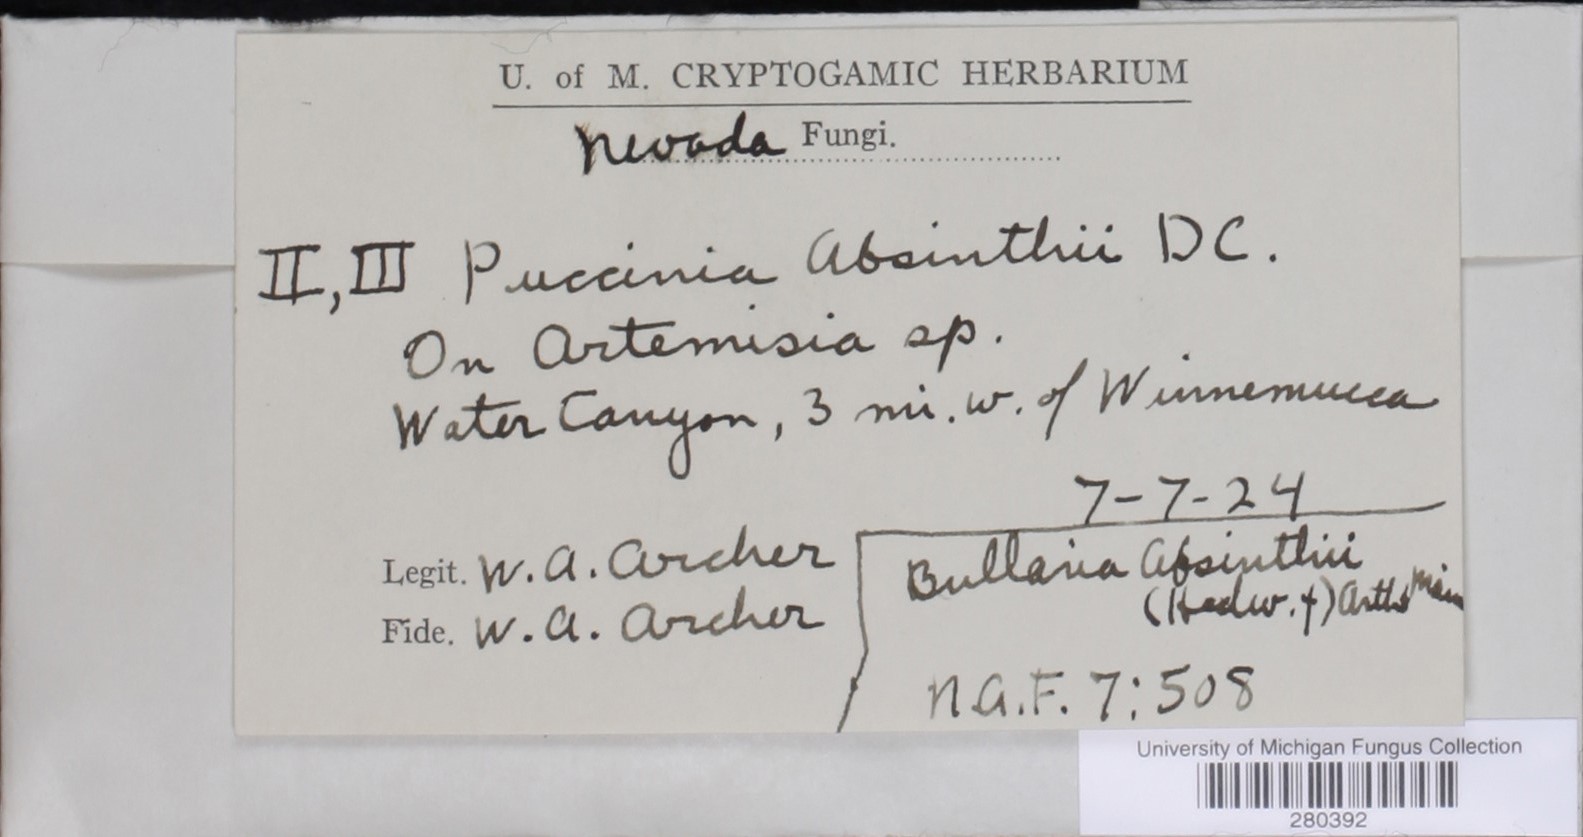 U. of M. CRYPTOGAMIC HERBARIUM
Nevada Fungi.
II, III Puccinia Absinthii DC.
On Artemisia sp.
Water Canyon, 3 mi. w. of Winnemucca
7-7-24
Legit. W. A. Archer
Fide. W. A. Archer
Bullaria Absinthii
(Hedw. f) Arth &
N.A.F. 7:508
University of Michigan Fungus Collection
280392